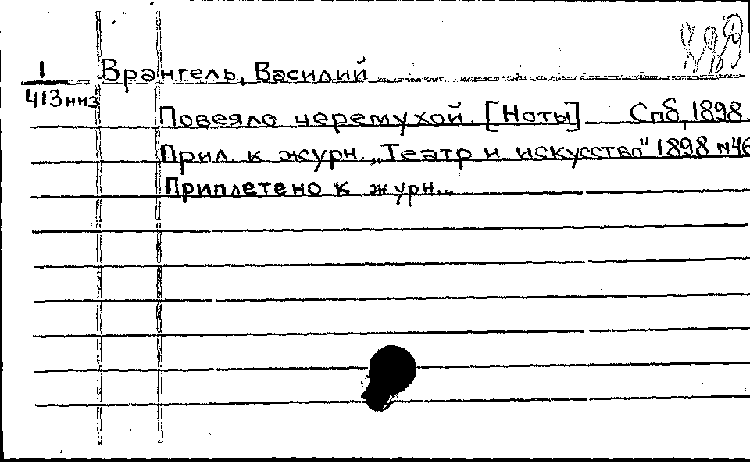 1 Врангель, Василий
413 ннз
Повеяло черемухой. [Ноты] Спб, 1898
Прил. к журн. „Театр и искусство" 1898 №46
Приплетено к журн...